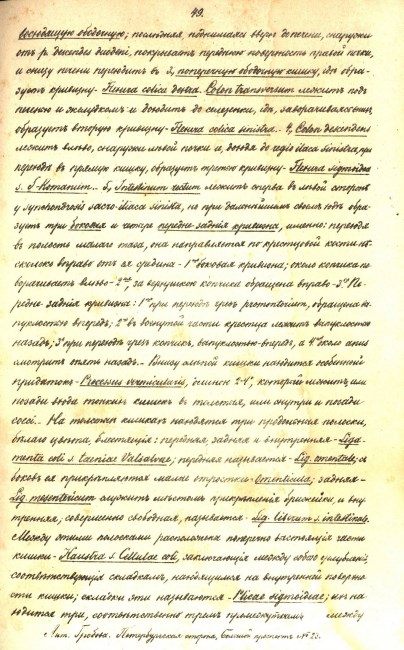 49.
восходящую ободочную; последняя, поднимаясь вверх до печени, снаружи
отъ p. descendens duodeni, покрываетъ переднюю поверхность правой почки,
и снизу печени переходитъ въ 3, поперечную ободочную кишку, гдѣ обра-
зуетъ кривизну - Flexura colica dextra. Colon transversum лежитъ подъ
печенью и желудкомъ и доходитъ до селезенки, гдѣ, заворачивая
образуетъ вторую кривизну - Flexura colica sinistra. - 4, Colon descendens
лежитъ влѣво, снаружи лѣвой почки и, доходя до regio iliaca sinistra, при
переходѣ въ прямую кишку, образуетъ третью кривизну - Flexura sigmoidea
s. S-Romanum. - 5, Intestinum rectum лежитъ сперва въ лѣвой сторонѣ
у synchondrosis sacro-iliaca sinistra, но при дальнѣйшемъ своемъ ходѣ обра-
зуетъ три боковыя и четыре передне-заднія кривизны, именно: переходя
въ полость малаго таза, она направляется по крестцовой кости нѣ-
сколько вправо отъ ея средины - 1ая боковая кривизна; около копчика по-
ворачиваетъ влѣво - 2ая, за верхушкою копчика обращена вправо - 3я. Пе-
редне-заднія кривизны: 1ая при переходѣ чрезъ promontorium, обращена вы-
пуклостью впередъ; 2ая въ вогнутой части крестца лежитъ выпуклостью
назадъ; 3я при переходѣ чрезъ копчикъ, выпуклостью впередъ, а 4ая около anus
смотритъ опять назадъ. - Внизу слѣпой кишки находится особенный
придатокъ - Processus vermicularis, длиною 2-4", который лежитъ, или
позади входа тонкихъ кишекъ въ толстыя, или снутри и позади
coeci. - На толстыхъ кишкахъ находятся три продольныя полоски,
бѣлаго цвѣта, блестящія: передняя, задняя и внутренняя - Liga-
menta coli s. taeniae Valsalvae; передняя называется - Lig. omentale; съ
боковъ ея прикрѣпляются малые отростки - Omenticula; задняя -
Lig. mesentericum служитъ мѣстомъ прикрѣпленія брыжейки, и вну-
тренняя, совершенно свободная, называется - Lig. liberum s. intestinale.
Между этими полосками расположены поперечно выстоящія части
кишки - Haustra s. Cellulae coli, заключающія между собою углубленія,
соотвѣтствующія складкамъ, находящимся на внутренней поверхно-
сти кишки; складки эти называются - Plicae sigmoideae; ихъ на-
ходится три, соотвѣтственно тремъ промежуткамъ между
Лит. Гробова. Петербургская сторона, Большой проспектъ № 23.